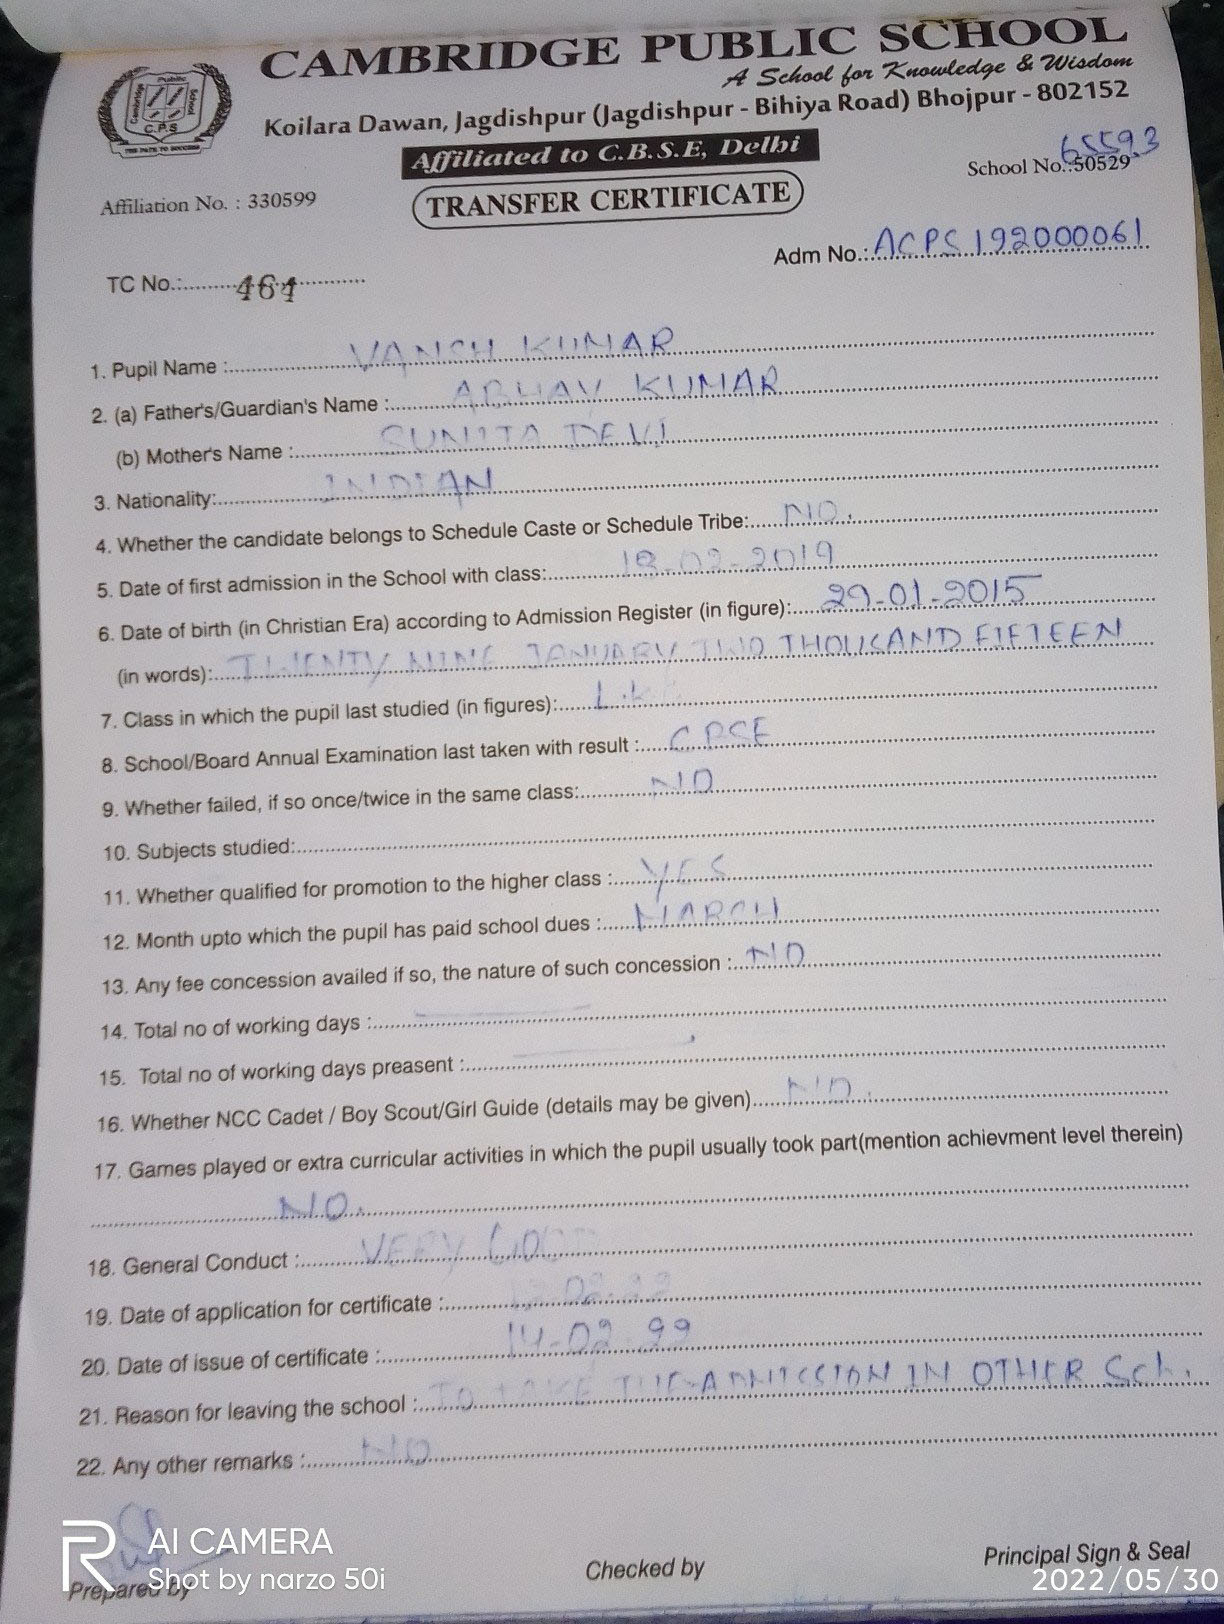 CAMBRIDGE PUBLIC SCHOOL
A School for Knowledge & Wisdom
Cambridge Public School
C.P.S
THE PATH TO SUCCESS
Koilara Dawan, Jagdishpur (Jagdishpur - Bihiya Road) Bhojpur - 802152
Affiliated to C.B.S.E, Delhi
65593
School No.:50529
Affiliation No. : 330599
TRANSFER CERTIFICATE
Adm No.: ACPS192000061
TC No.: 464
1. Pupil Name : VANSH KUMAR
2. (a) Father's/Guardian's Name : ABHAY KUMAR
(b) Mother's Name : SUNITA DEVI
3. Nationality: INDIAN
4. Whether the candidate belongs to Schedule Caste or Schedule Tribe: NO.
5. Date of first admission in the School with class: 18-02-2019
6. Date of birth (in Christian Era) according to Admission Register (in figure): 29-01-2015
(in words): TWENTY NINE JANUARY TWO THOUSAND FIFTEEN
7. Class in which the pupil last studied (in figures):
8. School/Board Annual Examination last taken with result :
9. Whether failed, if so once/twice in the same class: NO
10. Subjects studied:
11. Whether qualified for promotion to the higher class : YES
12. Month upto which the pupil has paid school dues : MARCH
13. Any fee concession availed if so, the nature of such concession : NO
14. Total no of working days :
15. Total no of working days preasent :
16. Whether NCC Cadet / Boy Scout/Girl Guide (details may be given) NO.
17. Games played or extra curricular activities in which the pupil usually took part(mention achievment level therein)
NO.
18. General Conduct : VERY GOOD
19. Date of application for certificate :
20. Date of issue of certificate : 14-02-22
21. Reason for leaving the school : TO TAKE THE ADMISSION IN OTHER Sch.
22. Any other remarks : NO
AI CAMERA
Shot by narzo 50i
Prepared by
Checked by
Principal Sign & Seal
2022/05/30